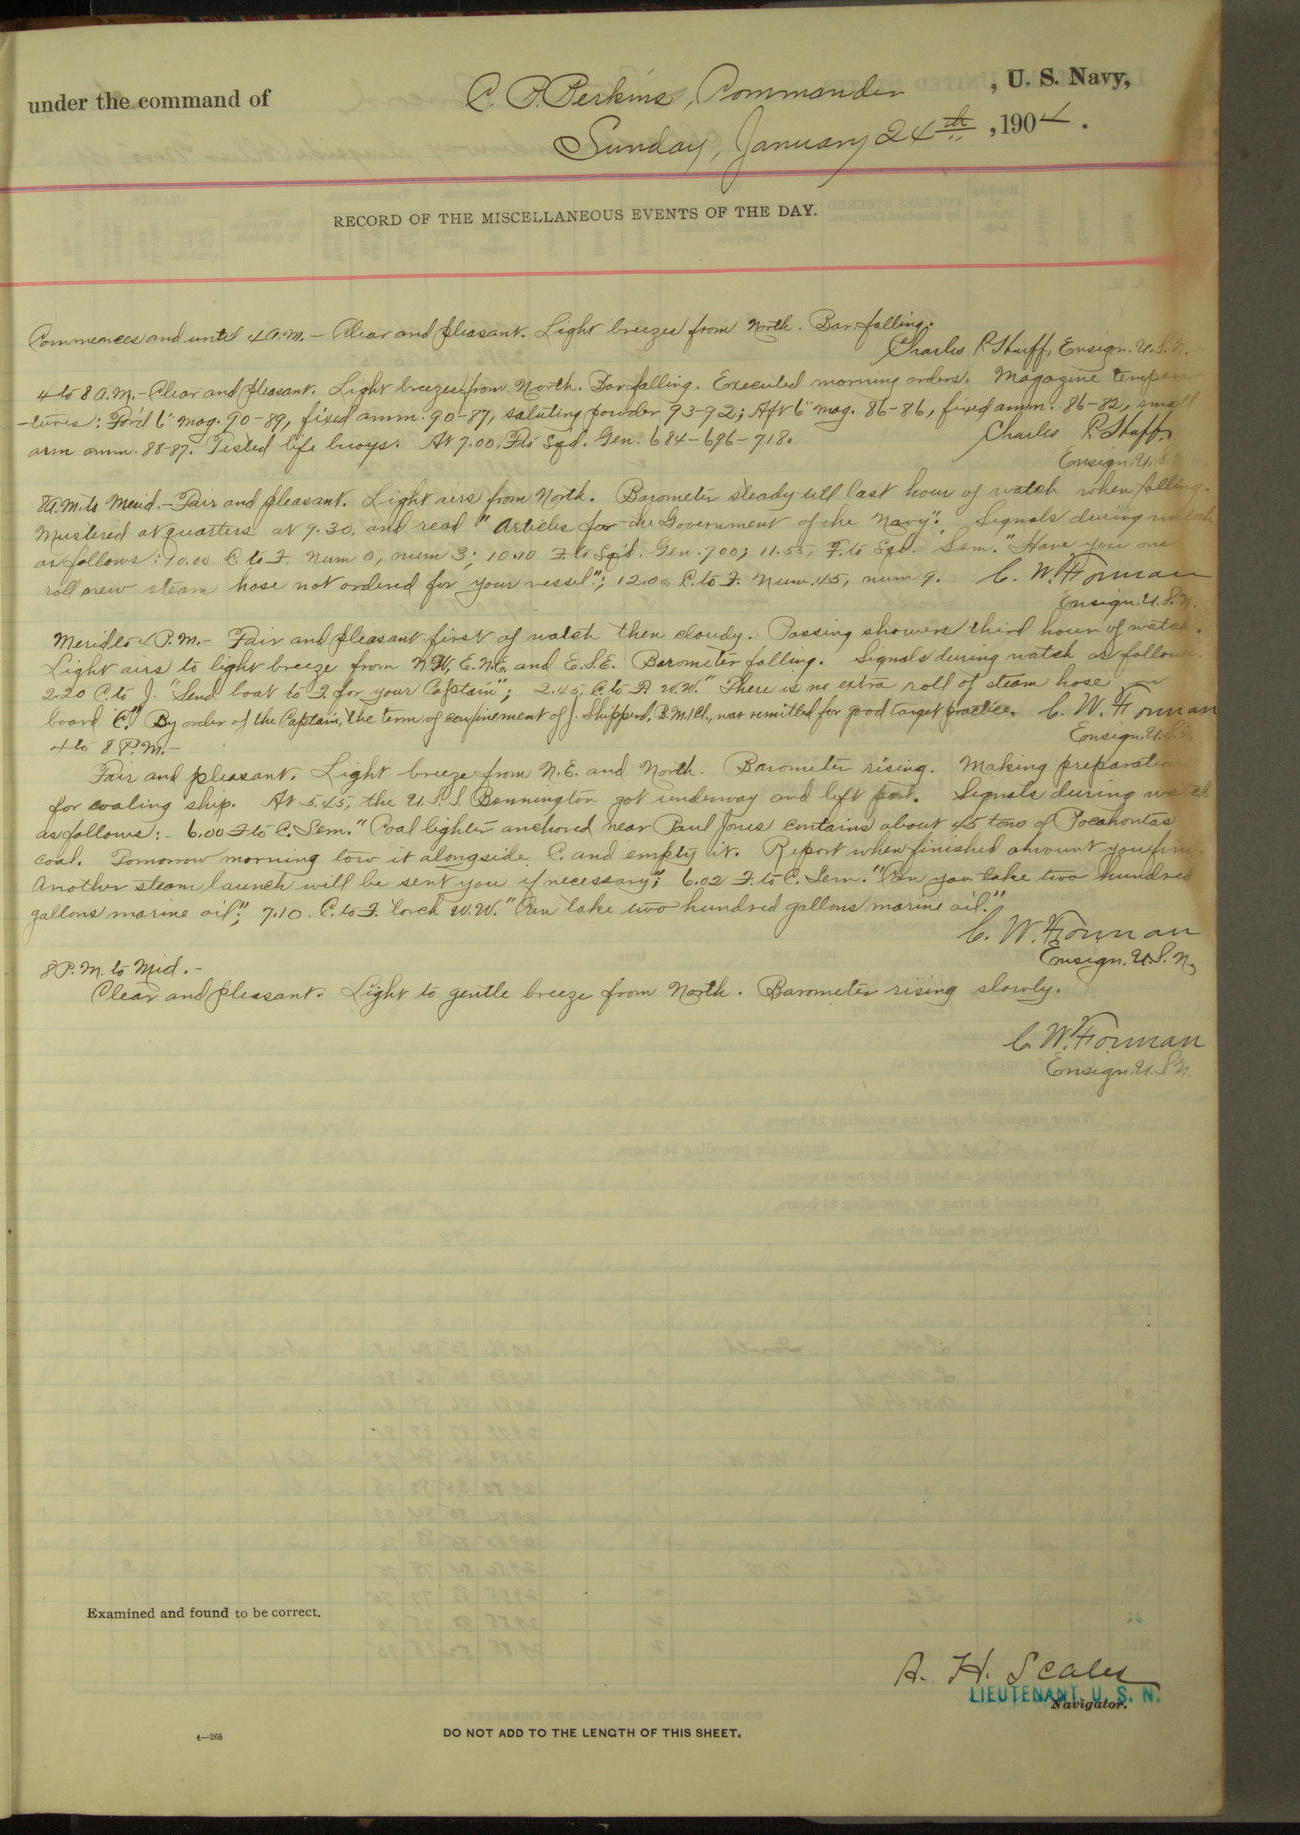 under the command of C. P. Perkins, Commander, U. S. Navy,
Sunday, January 24th, 1904.
RECORD OF THE MISCELLANEOUS EVENTS OF THE DAY.
Commences and until 4 A.M. – Clear and pleasant. Light breezes from North. Bar. falling.
Charles R. Shuff, Ensign. U.S.N.
4 to 8 A.M. – Clear and pleasant. Light breezes from North. Bar. falling. Executed morning orders. Magazine tempera
-tures: For'd 6" mag. 90-89, fixed amm. 90-87, saluting powder 93-92; Aft 6" mag. 86-86, fixed amm. 86-82, small
arm amm. 88-87. Tested life buoys. At 7.00, F. to Sqd. Gen. 684-696-718.
Charles R. Shuff,
Ensign. U.S.N.
8 A.M. to Merid. – Fair and pleasant. Light airs from North. Barometer steady till last hour of watch when falling.
Mustered at quarters at 9.30, and read "Articles for the Government of the Navy". Signals during watch
as follows: 10.00 C. to F. Num 0, num 3; 10.10 F. to Sqd. Gen. 700; 11.55, F. to Sqd. Sem. "Have you one
roll new steam hose not ordered for your vessel"; 12.00, C. to F. Num. 45, num 9. C. W. Forman
Ensign. U.S.N.
Merid. to 4 P.M. – Fair and pleasant first of watch then cloudy. Passing showers third hour of watch.
Light airs to light breeze from N.W., E.N.E. and E.S.E. Barometer falling. Signals during watch as follows.
2.20 C. to J. "Send boat to F. for your Captain"; 2.45, C. to F. W.W. "There is no extra roll of steam hose on
board C." By order of the Captain, the term of confinement of J. Shippard, B.M. 1 Cl., was remitted for good target practice. C. W. Forman
Ensign. U.S.N.
4 to 8 P.M. –
Fair and pleasant. Light breeze from N.E. and North. Barometer rising. Making preparation
for coaling ship. At 5.45, the U.S.S. Bennington got underway and left port. Signals during watch
as follows: – 6.00 F. to C. Sem. "Coal lighter anchored near Paul Jones contains about 45 tons of Pocahontas
coal. Tomorrow morning tow it alongside C. and empty it. Report when finished amount you find.
Another steam launch will be sent you if necessary"; 6.02 F. to C. Sem. "Can you take two hundred
gallons marine oil"; 7.10. C. to F. torch W.W. "Can take two hundred gallons marine oil."
C. W. Forman
Ensign. U.S.N.
8 P.M. to Mid. –
Clear and pleasant. Light to gentle breeze from North. Barometer rising slowly.
C. W. Forman
Ensign. U.S.N.
Examined and found to be correct.
A. H. Scales
LIEUTENANT, U. S. N.
Navigator.
4—265
DO NOT ADD TO THE LENGTH OF THIS SHEET.